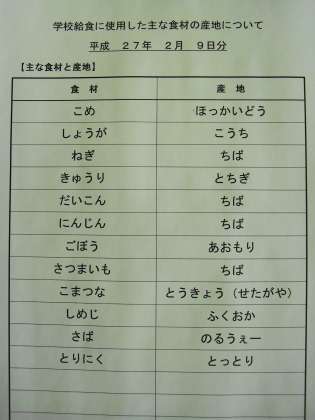 学校給食に使用した主な食材の産地について
平成 27年 2月 9日分
【主な食材と産地】
食 材 産 地
こめ ほっかいどう
しょうが こうち
ねぎ ちば
きゅうり とちぎ
だいこん ちば
にんじん ちば
ごぼう あおもり
さつまいも ちば
こまつな とうきょう（せたがや）
しめじ ふくおか
さば のるうぇー
とりにく とっとり